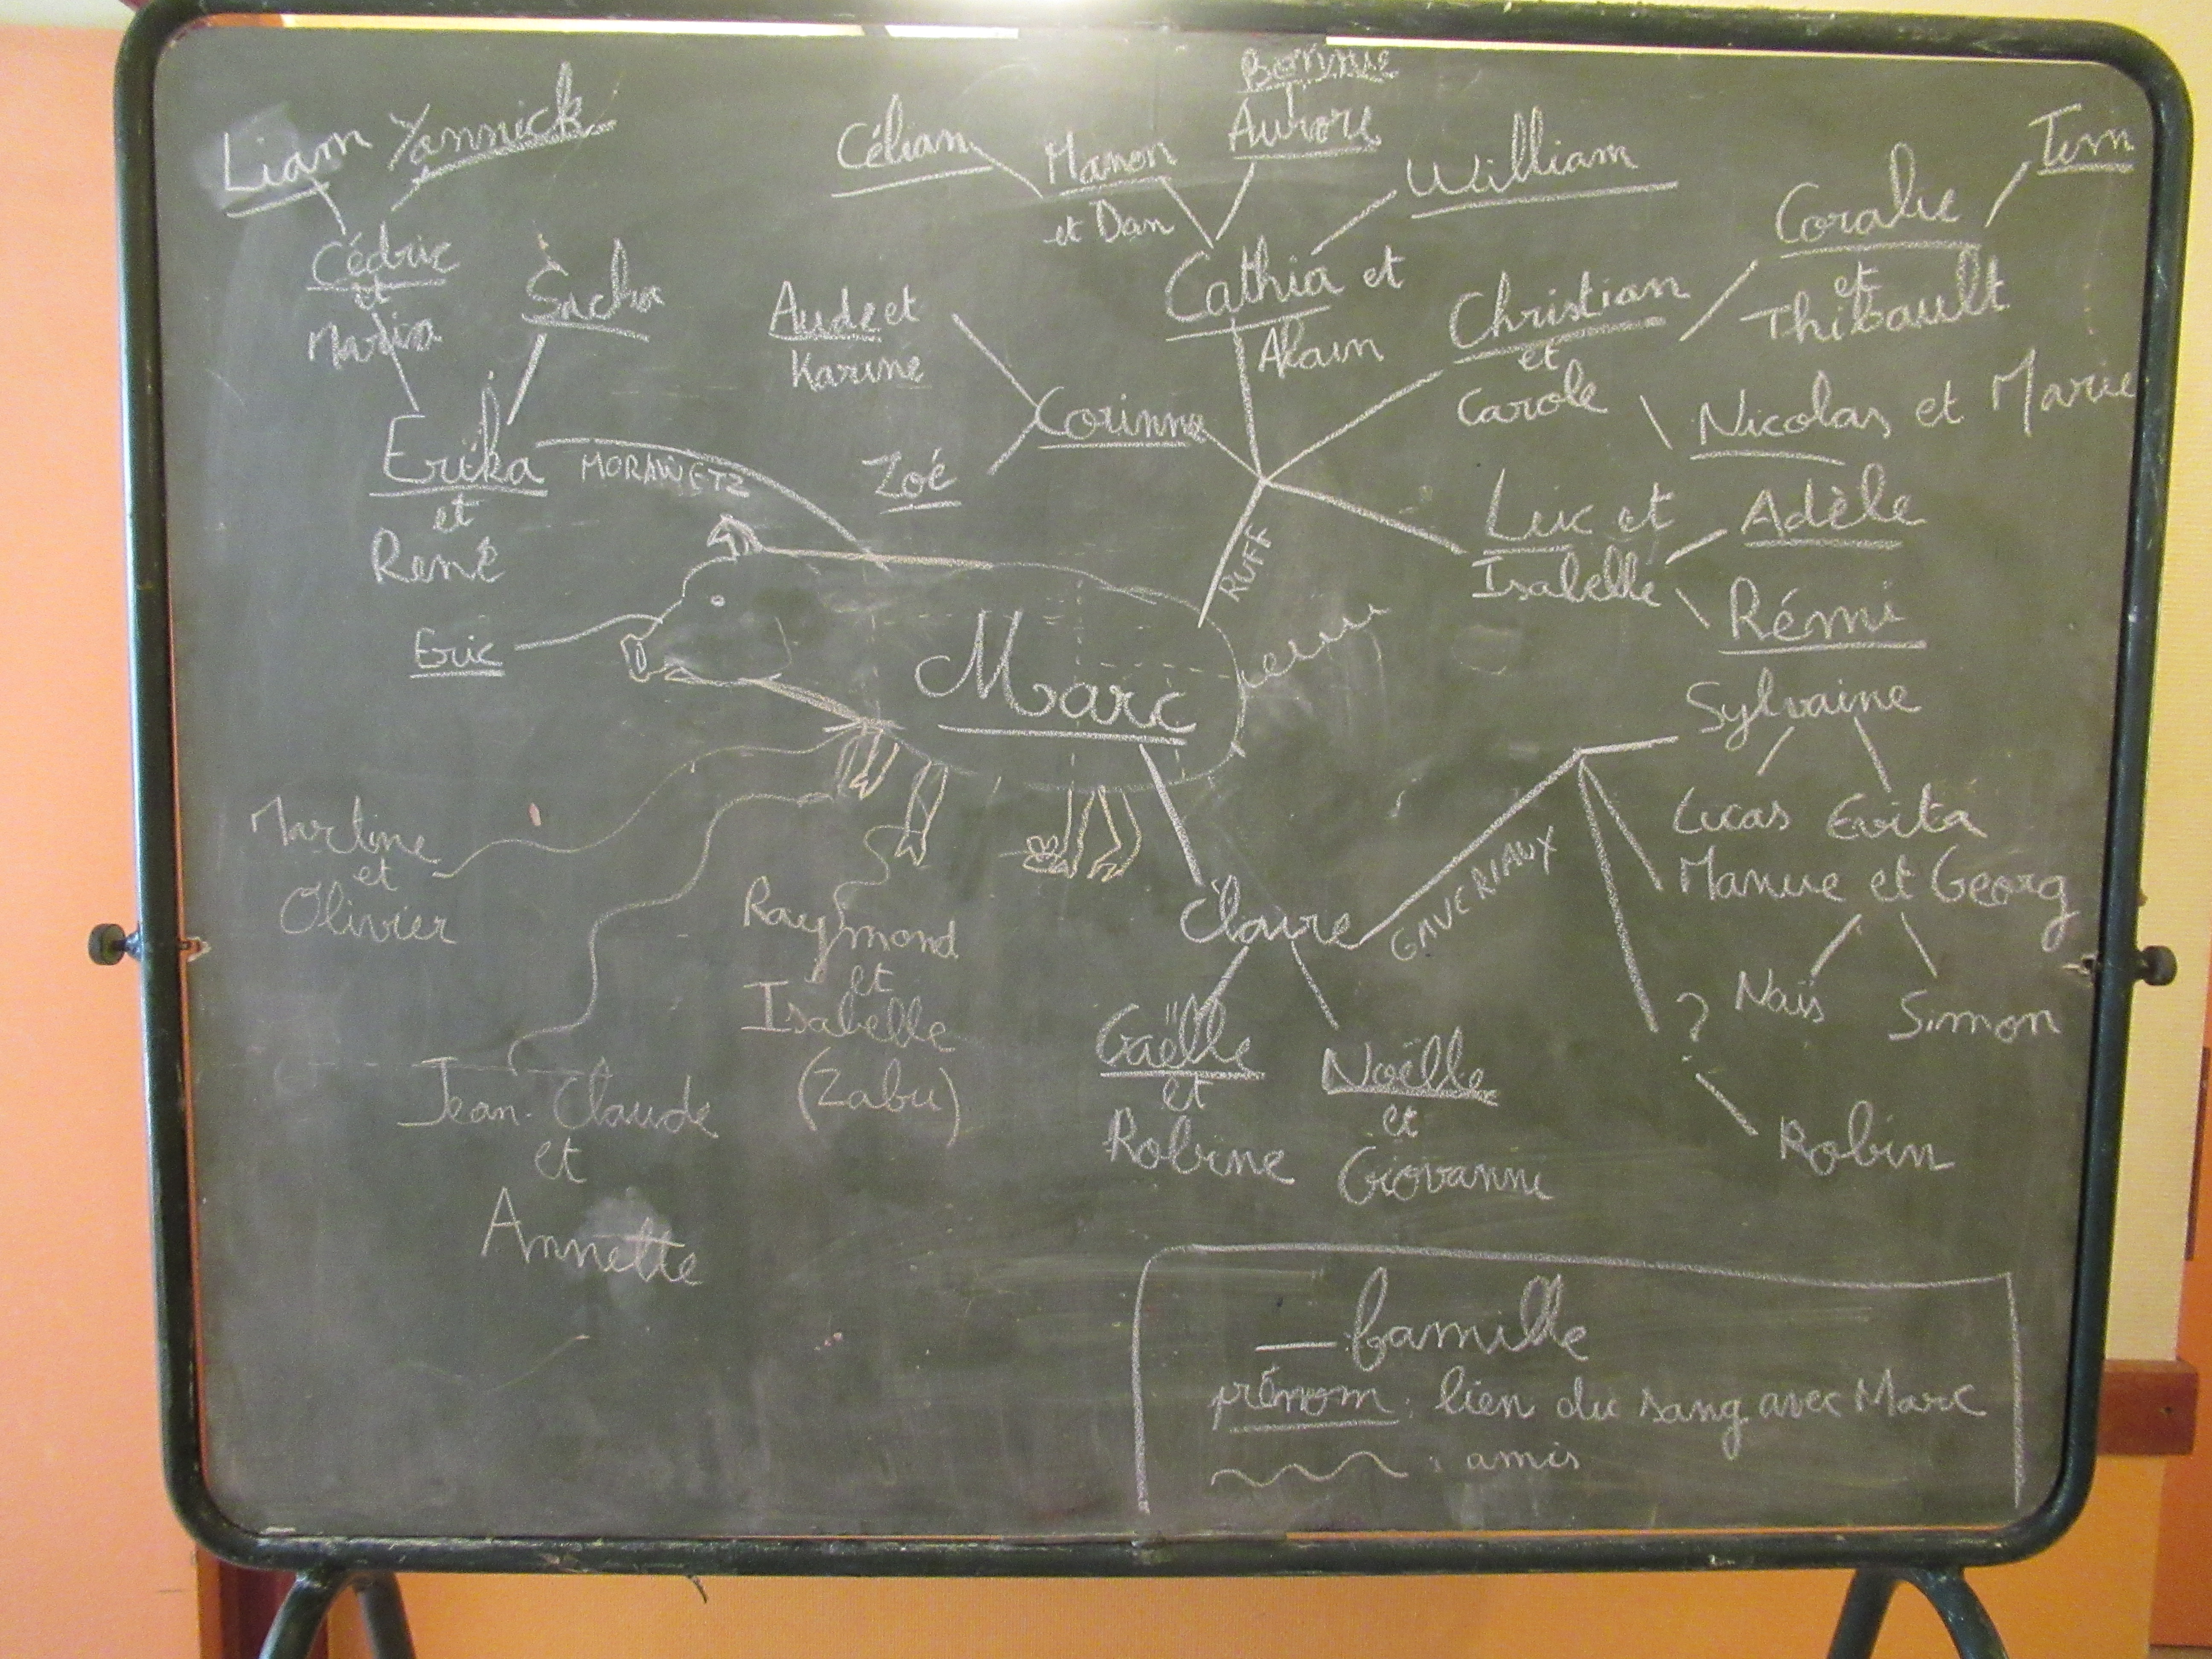 Bonnie
Liam Yannick
Célian Manon Aurore
et Dan
William
Tim
Coralie
et
Thibault
Cédric
et
Maria
Sacha
Aude et
Karine
Cathia et
Alain
Christian
et
Carole
Nicolas et Marie
Erika
et
René
MORAWETZ
Zoé
Corinne
RUFF
Luc et
Isabelle
Adèle
Rémi
Eric
Marc
Sylvaine
Lucas Evita
Manue et Georg
Naïs Simon
?
Robin
Martine
et
Olivier
Raymond
et
Isabelle
(Zabu)
Claire
GAVERIAUX
Jean-Claude
et
Annette
Gaëlle
et
Robine
Noëlle
et
Giovanni
famille
prénom : lien du sang avec Marc
: amis